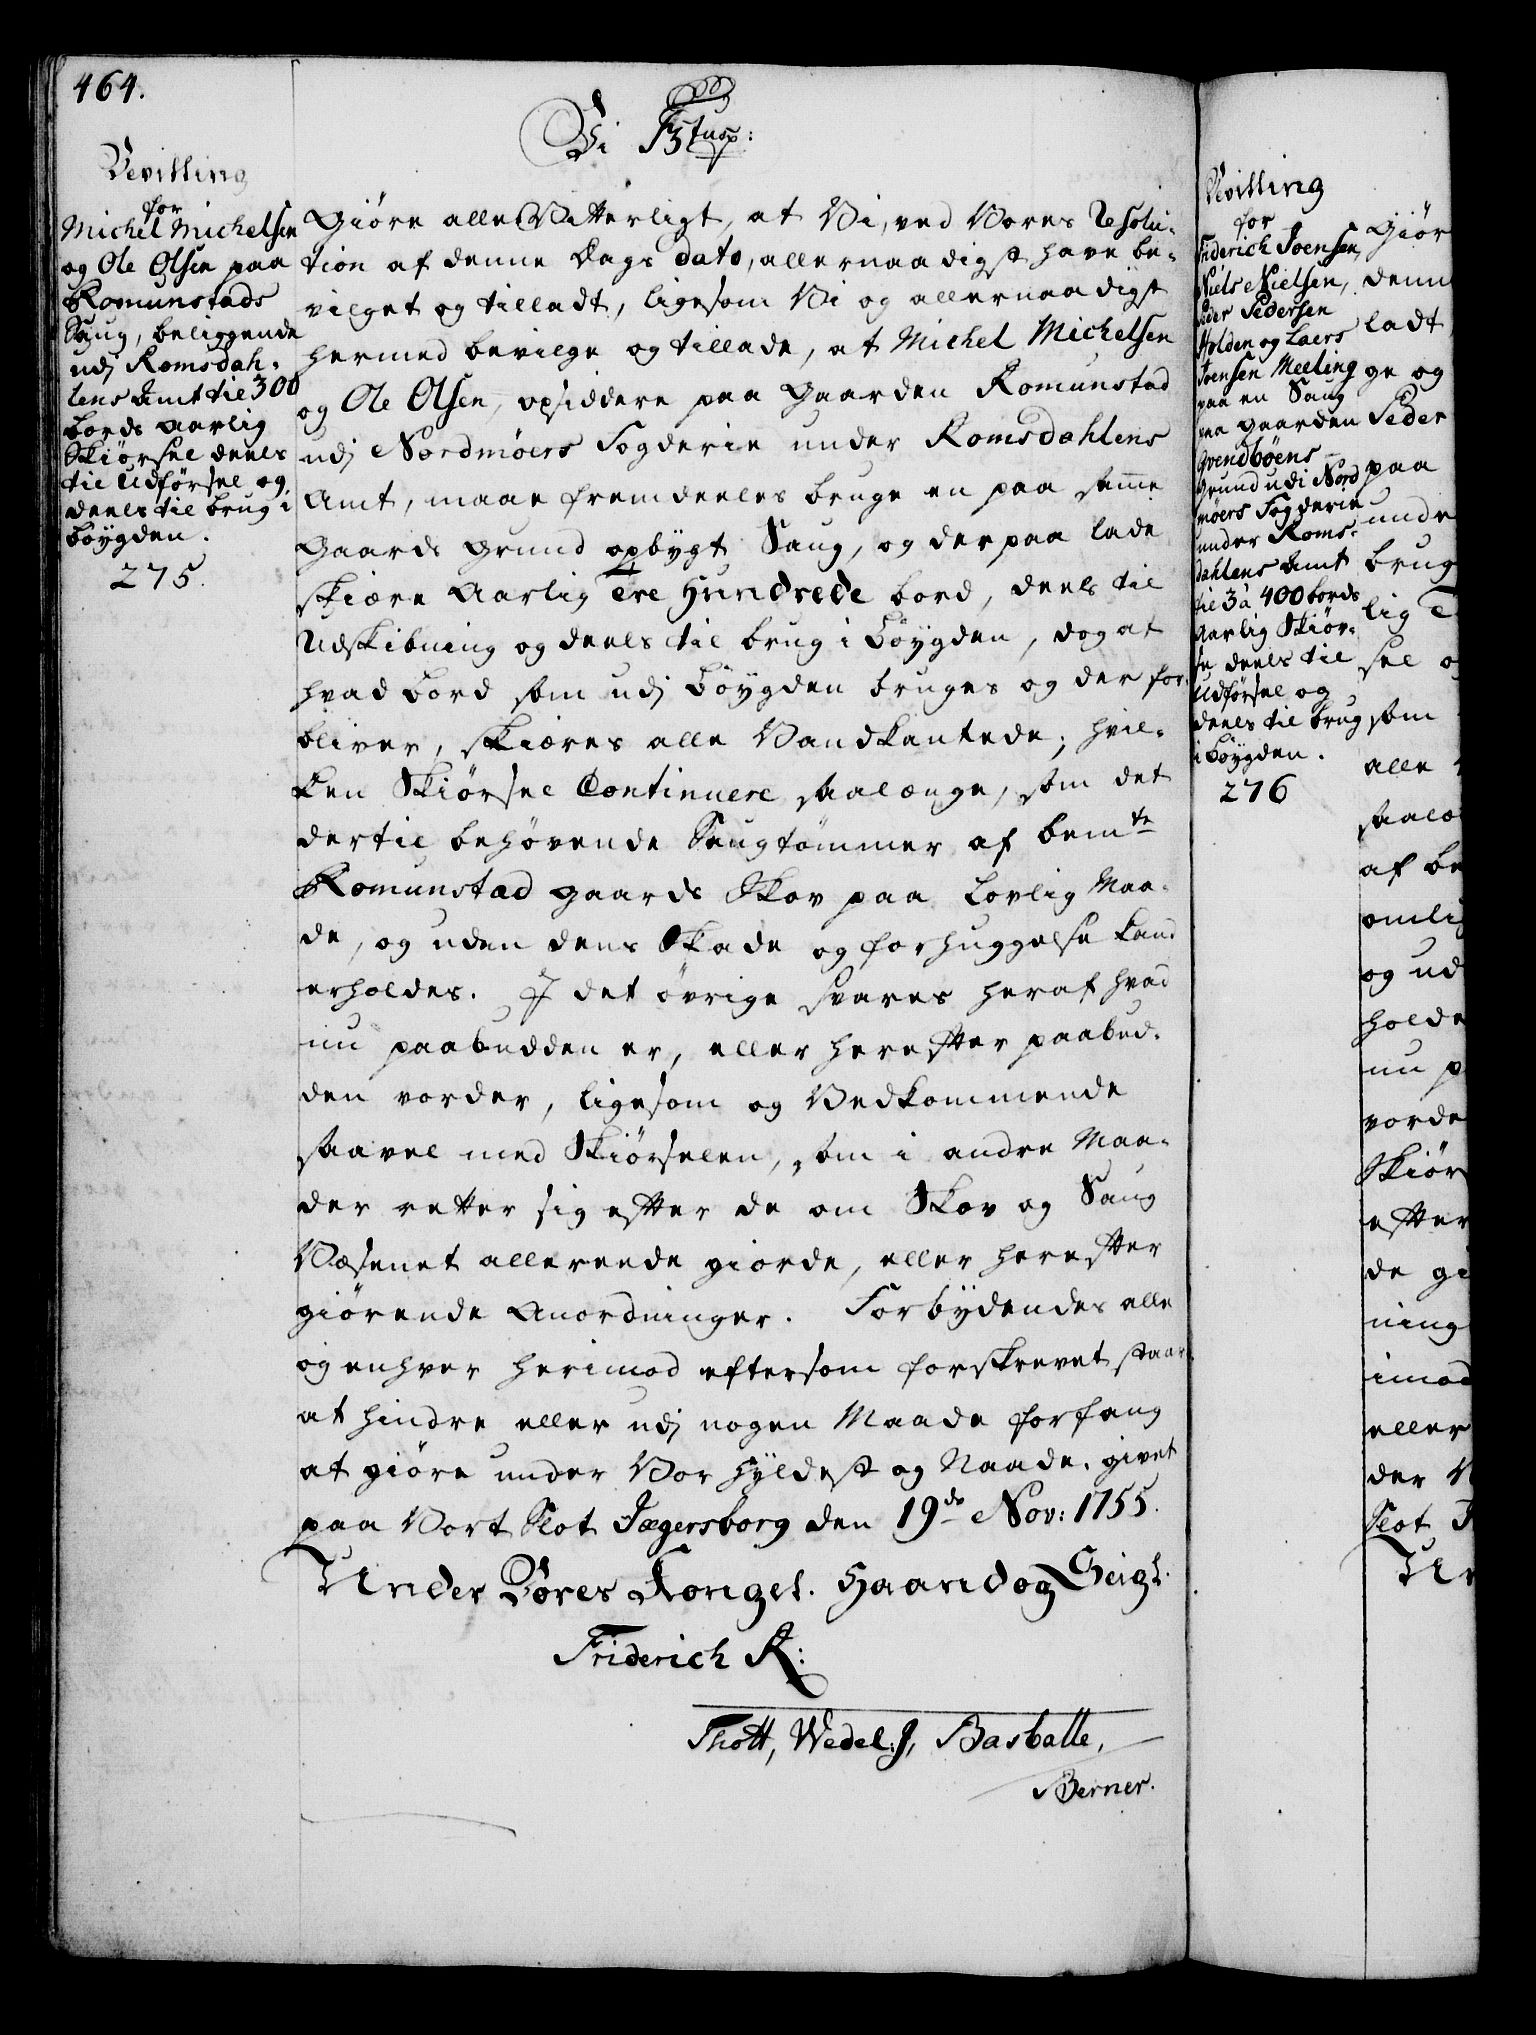 464.
Bevilling
for
Michel Michelsen
og Ole Olsen paa
Romunstads
Saug, beliggende
udj Romsdah-
lens Amt til 300
bords aarlig
Skiørsel deels
til Udførsel og
deels til brug i
bøygden.
275.
Vi
Giøre alle Vitterligt, at Vi, ved Vores Resolu-
tion af denne Dags dato, allernaadigst have be-
vilget og tilladt, ligesom Vi og allernaadigst
hermed bevilge og tillade, at Michel Michelsen
og Ole Olsen, opsiddere paa Gaarden Romunstad
udj Nordmøers Fogderie under Romsdahlens
Amt, maae fremdeeles bruge en paa samme
Gaards Grund opbygt Saug, og derpaa lade
skiære Aarlig Tre Hundrede bord, deels til
Udskibning og deels til brug i Bøygden, dog at
hvad bord som udj Bøygden bruges og der for-
bliver, skiæres alle Vandkantede; hvil-
ken Skiørsel Continuere saalænge, som det
dertil behøvende Saugtømmer af bemte
Romunstad Gaards Skov paa lovlig Maa-
de, og uden dens Skade og forhuggelse kand
erholdes. I det øvrige svares heraf hvad
nu paabudden er, eller herefter paabud-
den vorder, ligesom og Vedkommende
saavel med Skiørselen, som i andre Maa-
der retter sig efter de om Skov og Saug
Væsenet allereede giorde, eller herefter
giørende Anordninger. Forbydendes alle
og enhver herimod eftersom forskrevet staar
at hindre eller udj nogen Maade forfang
at giøre under Vor Hyldest og Naade. givet
paa Vort Slot Jægersborg den 19de Nov: 1755.
Under Vores Kongel. Haand og Seigl.
Friderich R:
Thott, Wedel: J, Basballe,
Berner.
Bevilling
for
Friderich Joensen,
Niels Nielsen,
Peder Pedersen
Holden og Laers
Joensen Meeling
paa en Saug
paa gaarden
Qvendbøens
Grund udi Nord
møers Fogderie
under Roms-
dahlens Amt
til 3 à 400 bords
Aarlig Skiør-
se deels til
Udførsel og
deels til brug
i Bøygden.
276
Giør
denn
ladt
ge og
Peder
paa
unde
brug
lig T
sel o
som
alle
saalæ
af be
omlig
og ud
holde
nu p
vorde
Skiør
efter
de gi
ning
imod
eller
der V
Slot J
Un